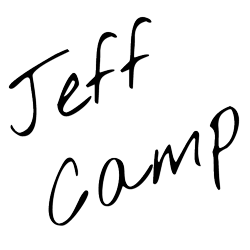 Jeff
Camp